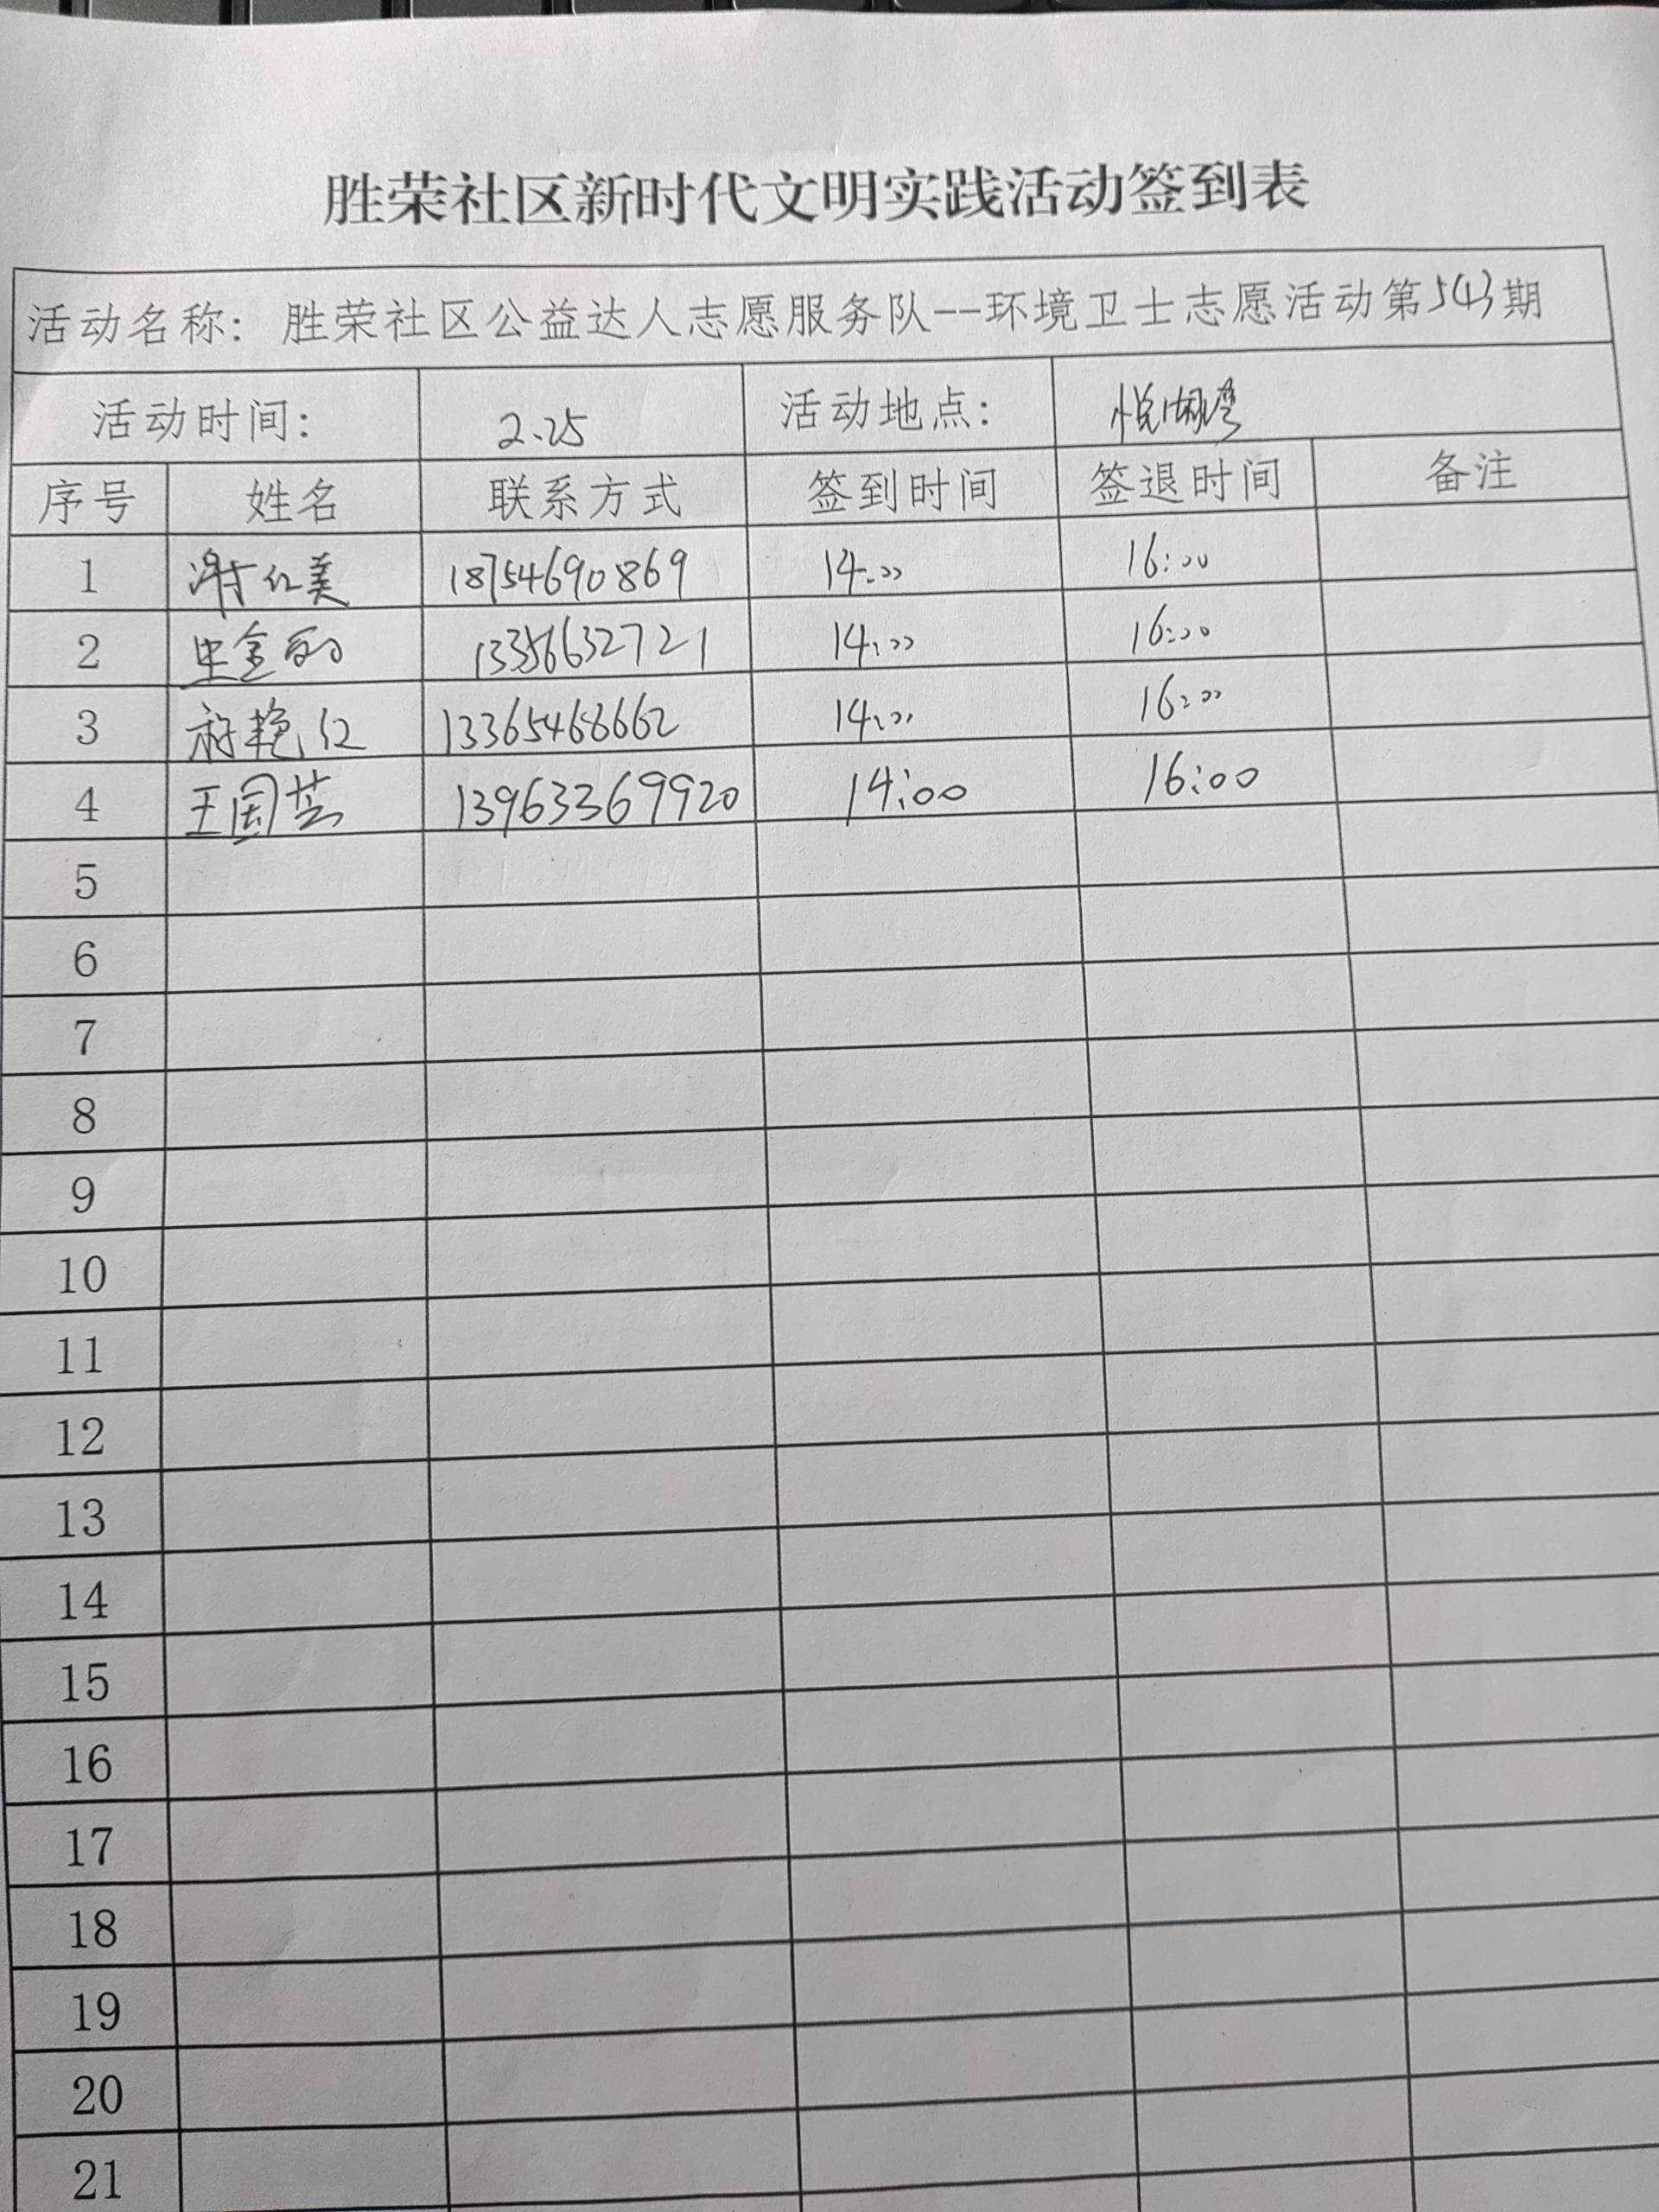 胜荣社区新时代文明实践活动签到表
活动名称：胜荣社区公益达人志愿服务队--环境卫士志愿活动第543期
活动时间： 2.25 活动地点： 悦湖湾
序号 姓名 联系方式 签到时间 签退时间 备注
1 谢红美 18754690869 14:00 16:00
2 13356632721 14:00 16:00
3 艳红 13365468662 14:00 16:00
4 王国芸 13963369920 14:00 16:00
5
6
7
8
9
10
11
12
13
14
15
16
17
18
19
20
21